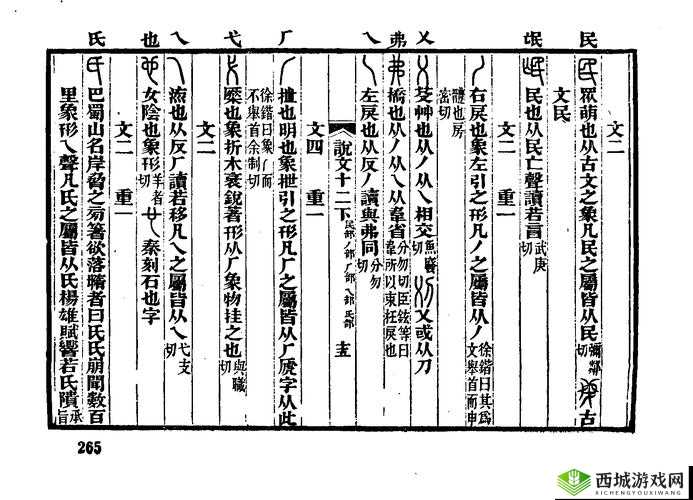 文二
民 眾萌也从古文之象凡民之屬皆从民彌鄰切 古
文民
氓 民也从民亡聲讀若盲武庚切
文二 重一
丿 右戾也象左引之形凡丿之屬皆从丿徐鍇曰其爲文舉首而申
體也房密切
乂 芟艸也从丿从乀相交魚廢切 乂或从刀
弗 撟也从丿从乀从韋省分勿切臣鉉等曰韋所以束枉戾也
乀 左戾也从反丿讀與弗同分勿切
說文十二下 民部 丿部 厂部 乁部 氏部
文四 重一
厂 抴也明也象抴引之形凡厂之屬皆从厂虒字从此
徐鍇曰象丿而不舉首余制切
弋 橜也象折木衺銳著形从厂象物挂之也與職切
文二
乁 流也从反厂讀若移凡乁之屬皆从乁弋支切
也 女陰也象形羊者切 秦刻石也字
文二 重一
氏 巴蜀山名岸脅之旁箸欲落墮者曰氏氏崩聞數百
里象形乁聲凡氏之屬皆从氏楊雄賦響若氏隤承旨切
265
西城游戏网
XICHENGYOUXIWANG